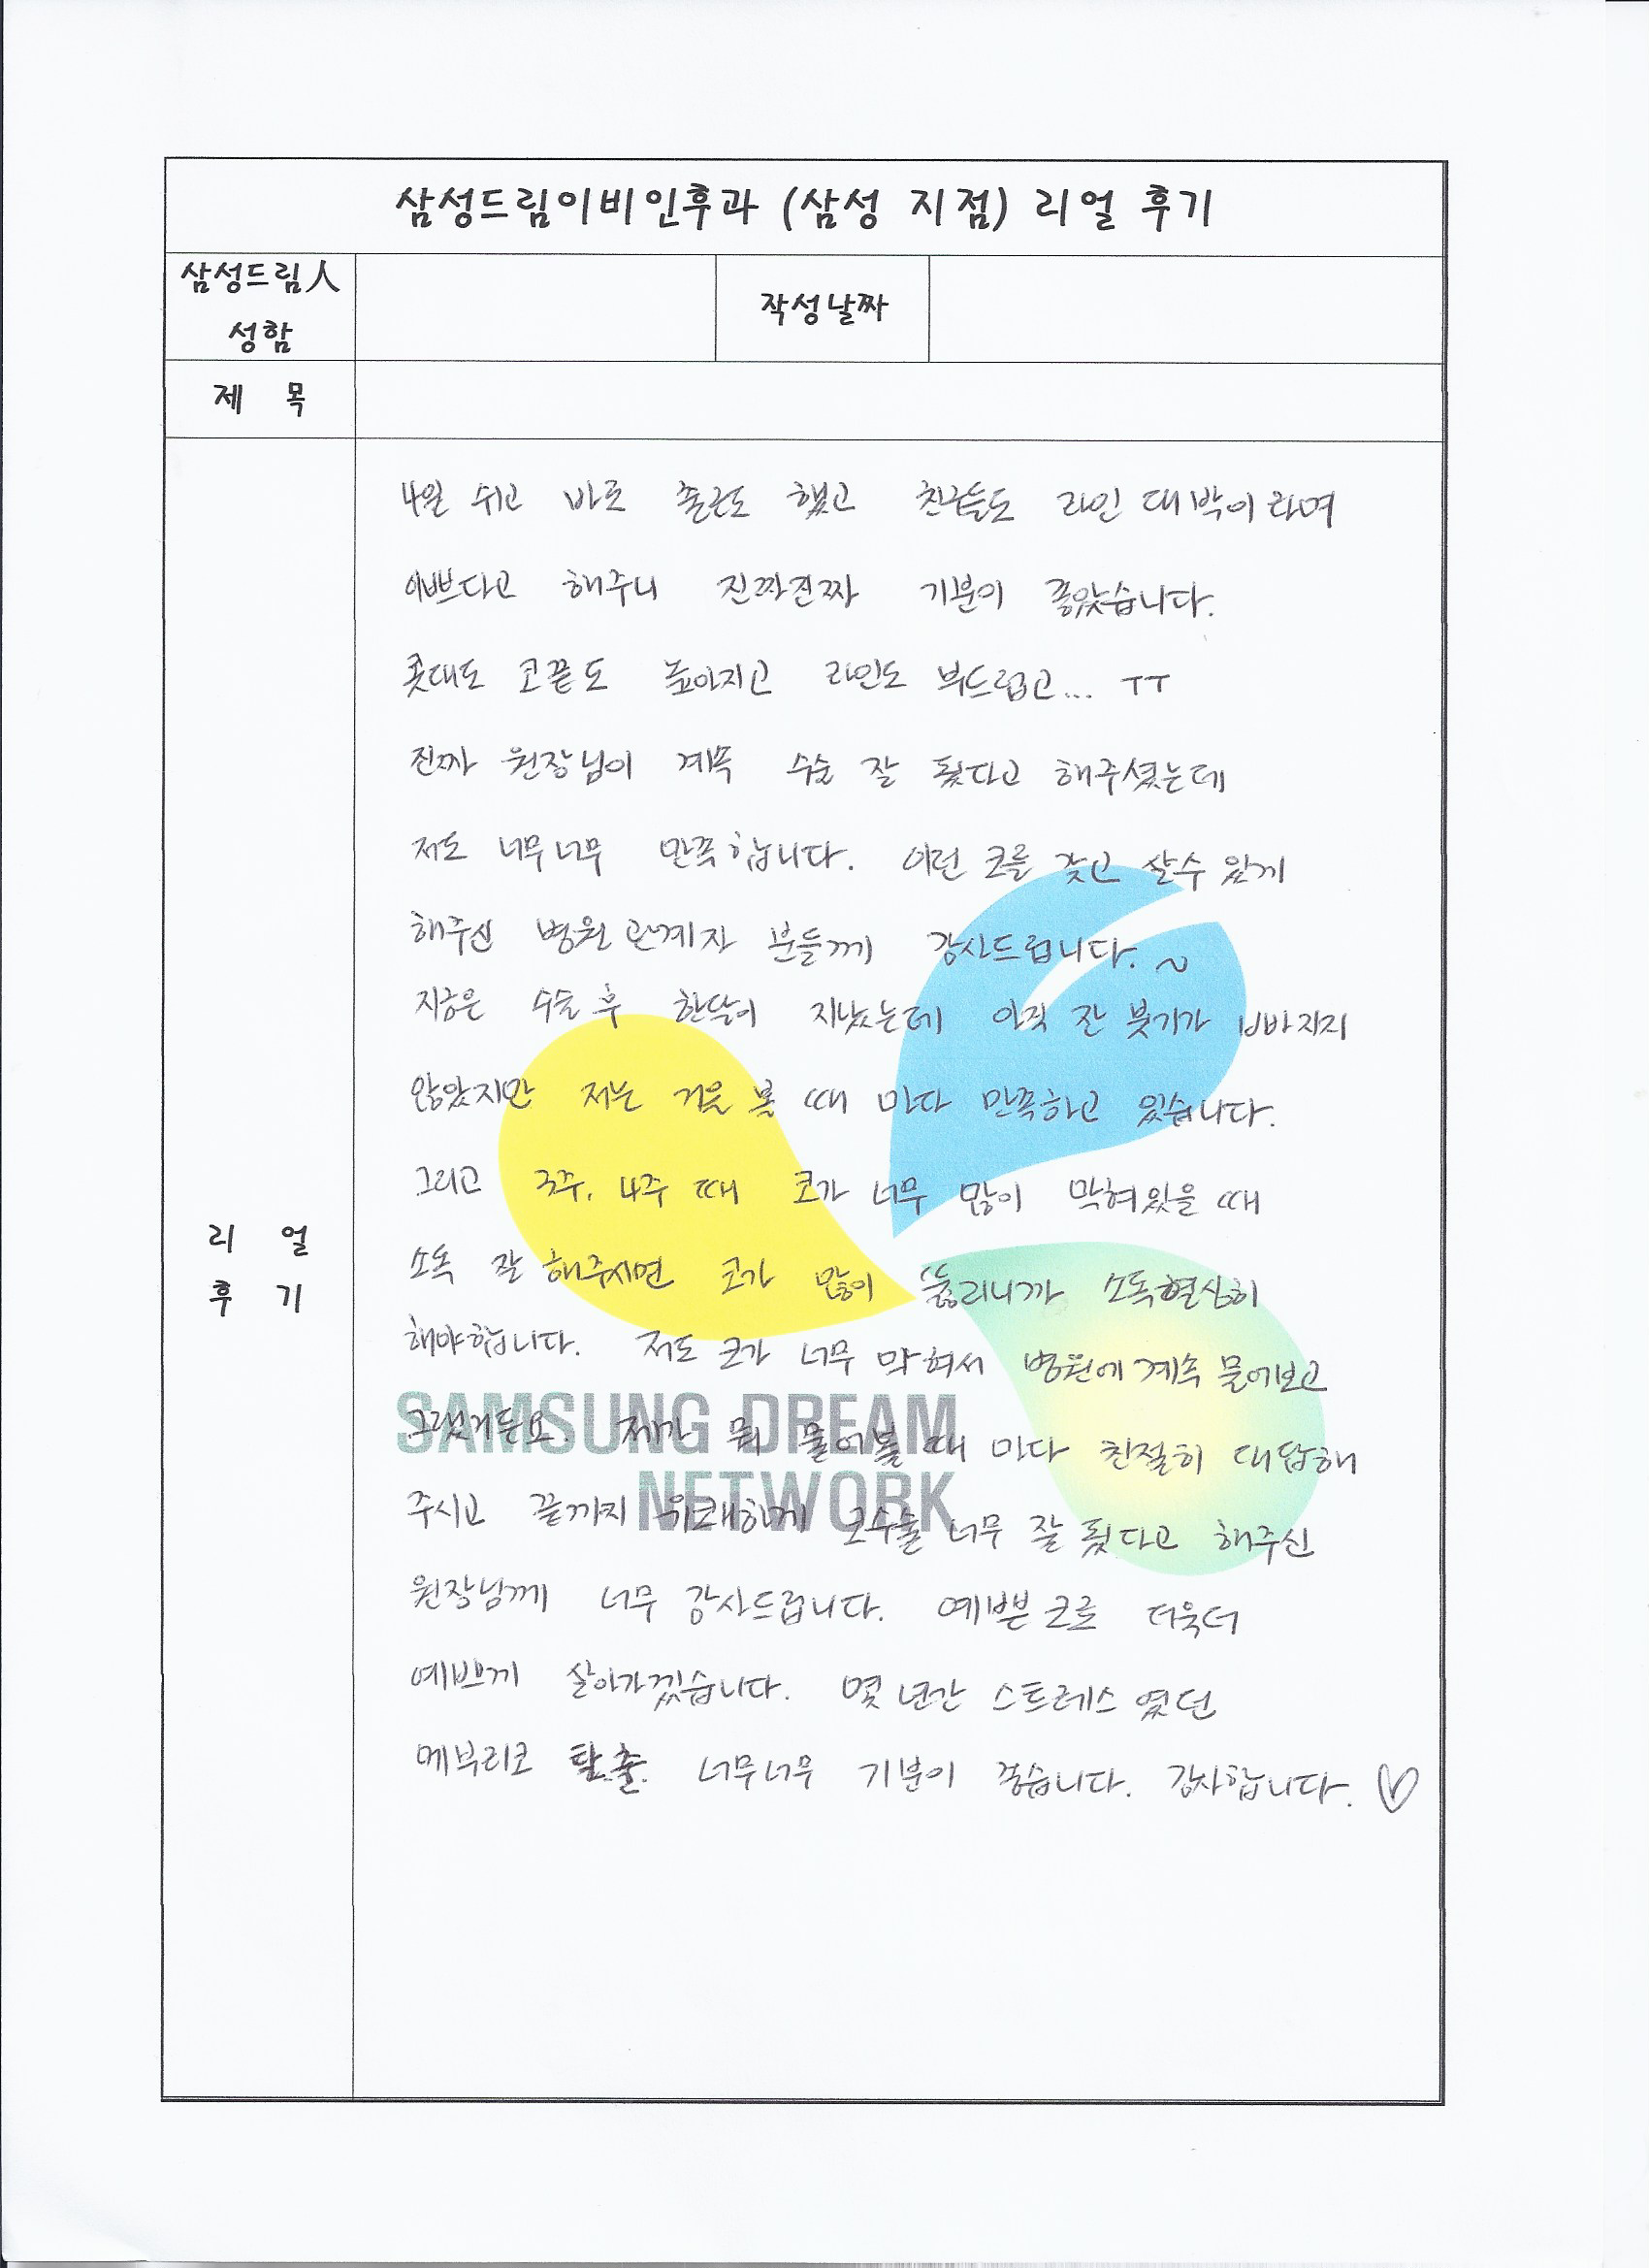 삼성드림이비인후과 (삼성 지점) 리얼 후기
삼성드림人
성함
작성날짜
제 목
4일 쉬고 바로 출근도 했고 친구들도 라인 대박이라며
이쁘다고 해주니 진짜진짜 기분이 좋았습니다.
콧대도 코끝도 높아지고 라인도 부드럽고... ㅜㅜ
진짜 원장님이 계쏙 수술 잘 됬다고 해주셨는데
저도 너무너무 만족합니다. 이런 코를 갖고 살수 있게
해주신 병원 관계자 분들께 감사드립니다. ~
지금은 수술 후 한달이 지났는데 아직 잔 붓기가 빠지지
않았지만 저는 거울 볼 때 마다 만족하고 있습니다.
그리고 3주. 4주 때 코가 너무 많이 막혀있을 때
소독 잘 해주시면 코가 많이 뚫리니까 소독열심히
해야합니다. 저도 코가 너무 막혀서 병원에 계속 물어보고
그랬거든요. 제가 뭐 물어볼 때 마다 친절히 대답해
주시고 끝까지 코수술 너무 잘 됬다고 해주신
원장님께 너무 감사드립니다. 예쁜 코로 더욱더
예쁘게 살아가겠습니다. 몇 년간 스트레스 였던
메부리코 탈출 너무너무 기분이 좋습니다. 감사합니다. ♡
리 얼
후 기
SAMSUNG DREAM
NETWORK